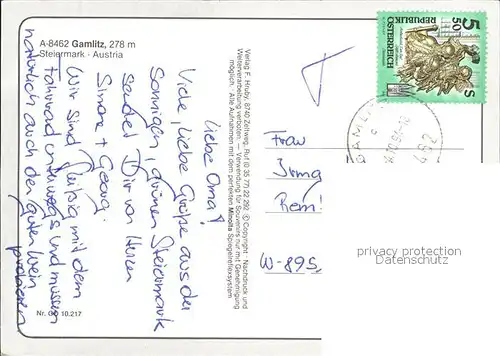 A-8462 Gamlitz, 278 m
Steiermark · Austria
Liebe Oma!
Viele, liebe Grüße aus der
sonnigen, grünen Steiermark
sendet Dir von Herzen
Simone + Georg.
Wir sind fleißig mit dem
Fahrrad unterwegs und müssen
natürlich auch den guten Wein
probieren.
Nr. 10.217
Verlag F. Hruby, 8740 Zeltweg, Ruf (0 35 77) 22 292 © Copyright · Nachdruck und
Weiterverarbeitung verboten — Verwendung für Souvenirs nur mit Genehmigung
möglich. · Alle Aufnahmen mit dem perfekten Minolta Spiegelreflexsystem
5 50
S
REPUBLIK
ÖSTERREICH
GAMLITZ
8462
Frau
Irmg
Rem!
W-895
privacy protection
Datenschutz